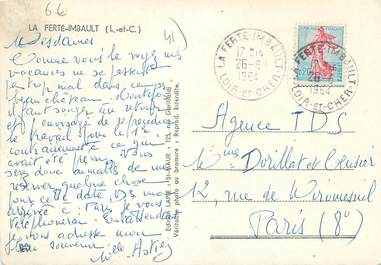 66
LA FERTE-IMBAULT (L.-et-C.)
41
Mesdames
Comme vous le voyez mes
vacances ne se passent
pas trop mal dans ce
beau château.
il faut songer au retour
et j'envisage de reprendre
le travail pour le 1er
contrairement à ce qui
avait été prévu. Vous
seriez donc aimables de
me réserver quelque chose
pour cette date. DS mon
arrivée à Paris je vous
téléphonerai. En attendant
je vous adresse mon
souvenir
LA FERTE-IMBAULT
17H
26-8
1964
LOIR-et-CHER
LA FERTE-IMBAULT
26-8
1964
LOIR-et-CHER
Agence TDS
Mmes Dorillat et
12, rue de Miromesnil
Paris (8°)
Edition LAPIE - St-MAUR
Véritable photo au bromure : Reprod. Interdite.